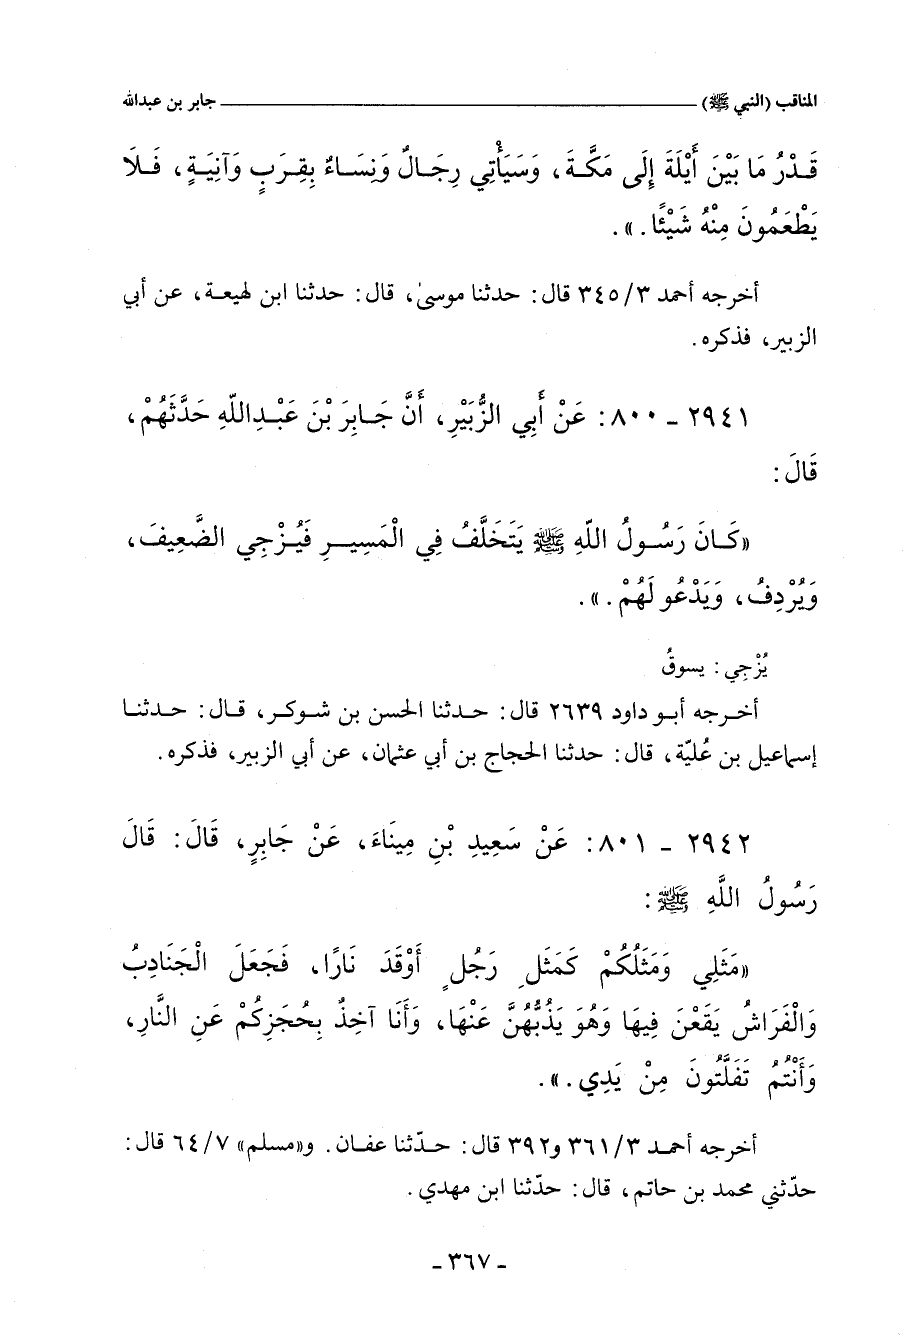 المناقب (النبي ﷺ) ـــــــــ جابر بن عبدالله
قَدْرُ مَا بَيْنَ أَيْلَةَ إِلَى مَكَّةَ، وَسَيَأْتِي رِجَالٌ وَنِسَاءٌ بِقِرَبٍ وَآنِيَةٍ، فَلَا
يَطْعَمُونَ مِنْهُ شَيْئًا.».
أخرجه أحمد ٣٤٥/٣ قال: حدثنا موسىٰ، قال: حدثنا ابن لهيعة، عن أبي
الزبير، فذكره.
٢٩٤١ - ٨٠٠: عَنْ أَبِي الزُّبَيْرِ، أَنَّ جَابِرَ بْنَ عَبْدِاللّهِ حَدَّثَهُمْ،
قَالَ:
«كَانَ رَسُولُ اللّهِ ﷺ يَتَخَلَّفُ فِي الْمَسِيرِ فَيُزْجِي الضَّعِيفَ،
وَيُرْدِفُ، وَيَدْعُو لَهُمْ.».
يُزْجِي: يسوقُ
أخرجه أبو داود ٢٦٣٩ قال: حدثنا الحسن بن شوكر، قال: حدثنا
إسماعيل بن عُليّة، قال: حدثنا الحجاج بن أبي عثمان، عن أبي الزبير، فذكره.
٢٩٤٢ - ٨٠١: عَنْ سَعِيدِ بْنِ مِينَاءَ، عَنْ جَابِرٍ، قَالَ: قَالَ
رَسُولُ اللَّهِ ﷺ:
«مَثَلِي وَمَثَلُكُمْ كَمَثَلِ رَجُلٍ أَوْقَدَ نَارًا، فَجَعَلَ الْجَنَادِبُ
وَالْفَرَاشُ يَقَعْنَ فِيهَا وَهُوَ يَذُبُّهُنَّ عَنْهَا، وَأَنَا آخِذٌ بِحُجَزِكُمْ عَنِ النَّارِ،
وَأَنْتُمْ تَفَلَّتُونَ مِنْ يَدِي.».
أخرجه أحمد ٣٦١/٣ و٣٩٢ قال: حدّثنا عفان. و«مسلم» ٦٤/٧ قال:
حدّثني محمد بن حاتم، قال: حدّثنا ابن مهدي.
- ٣٦٧ -